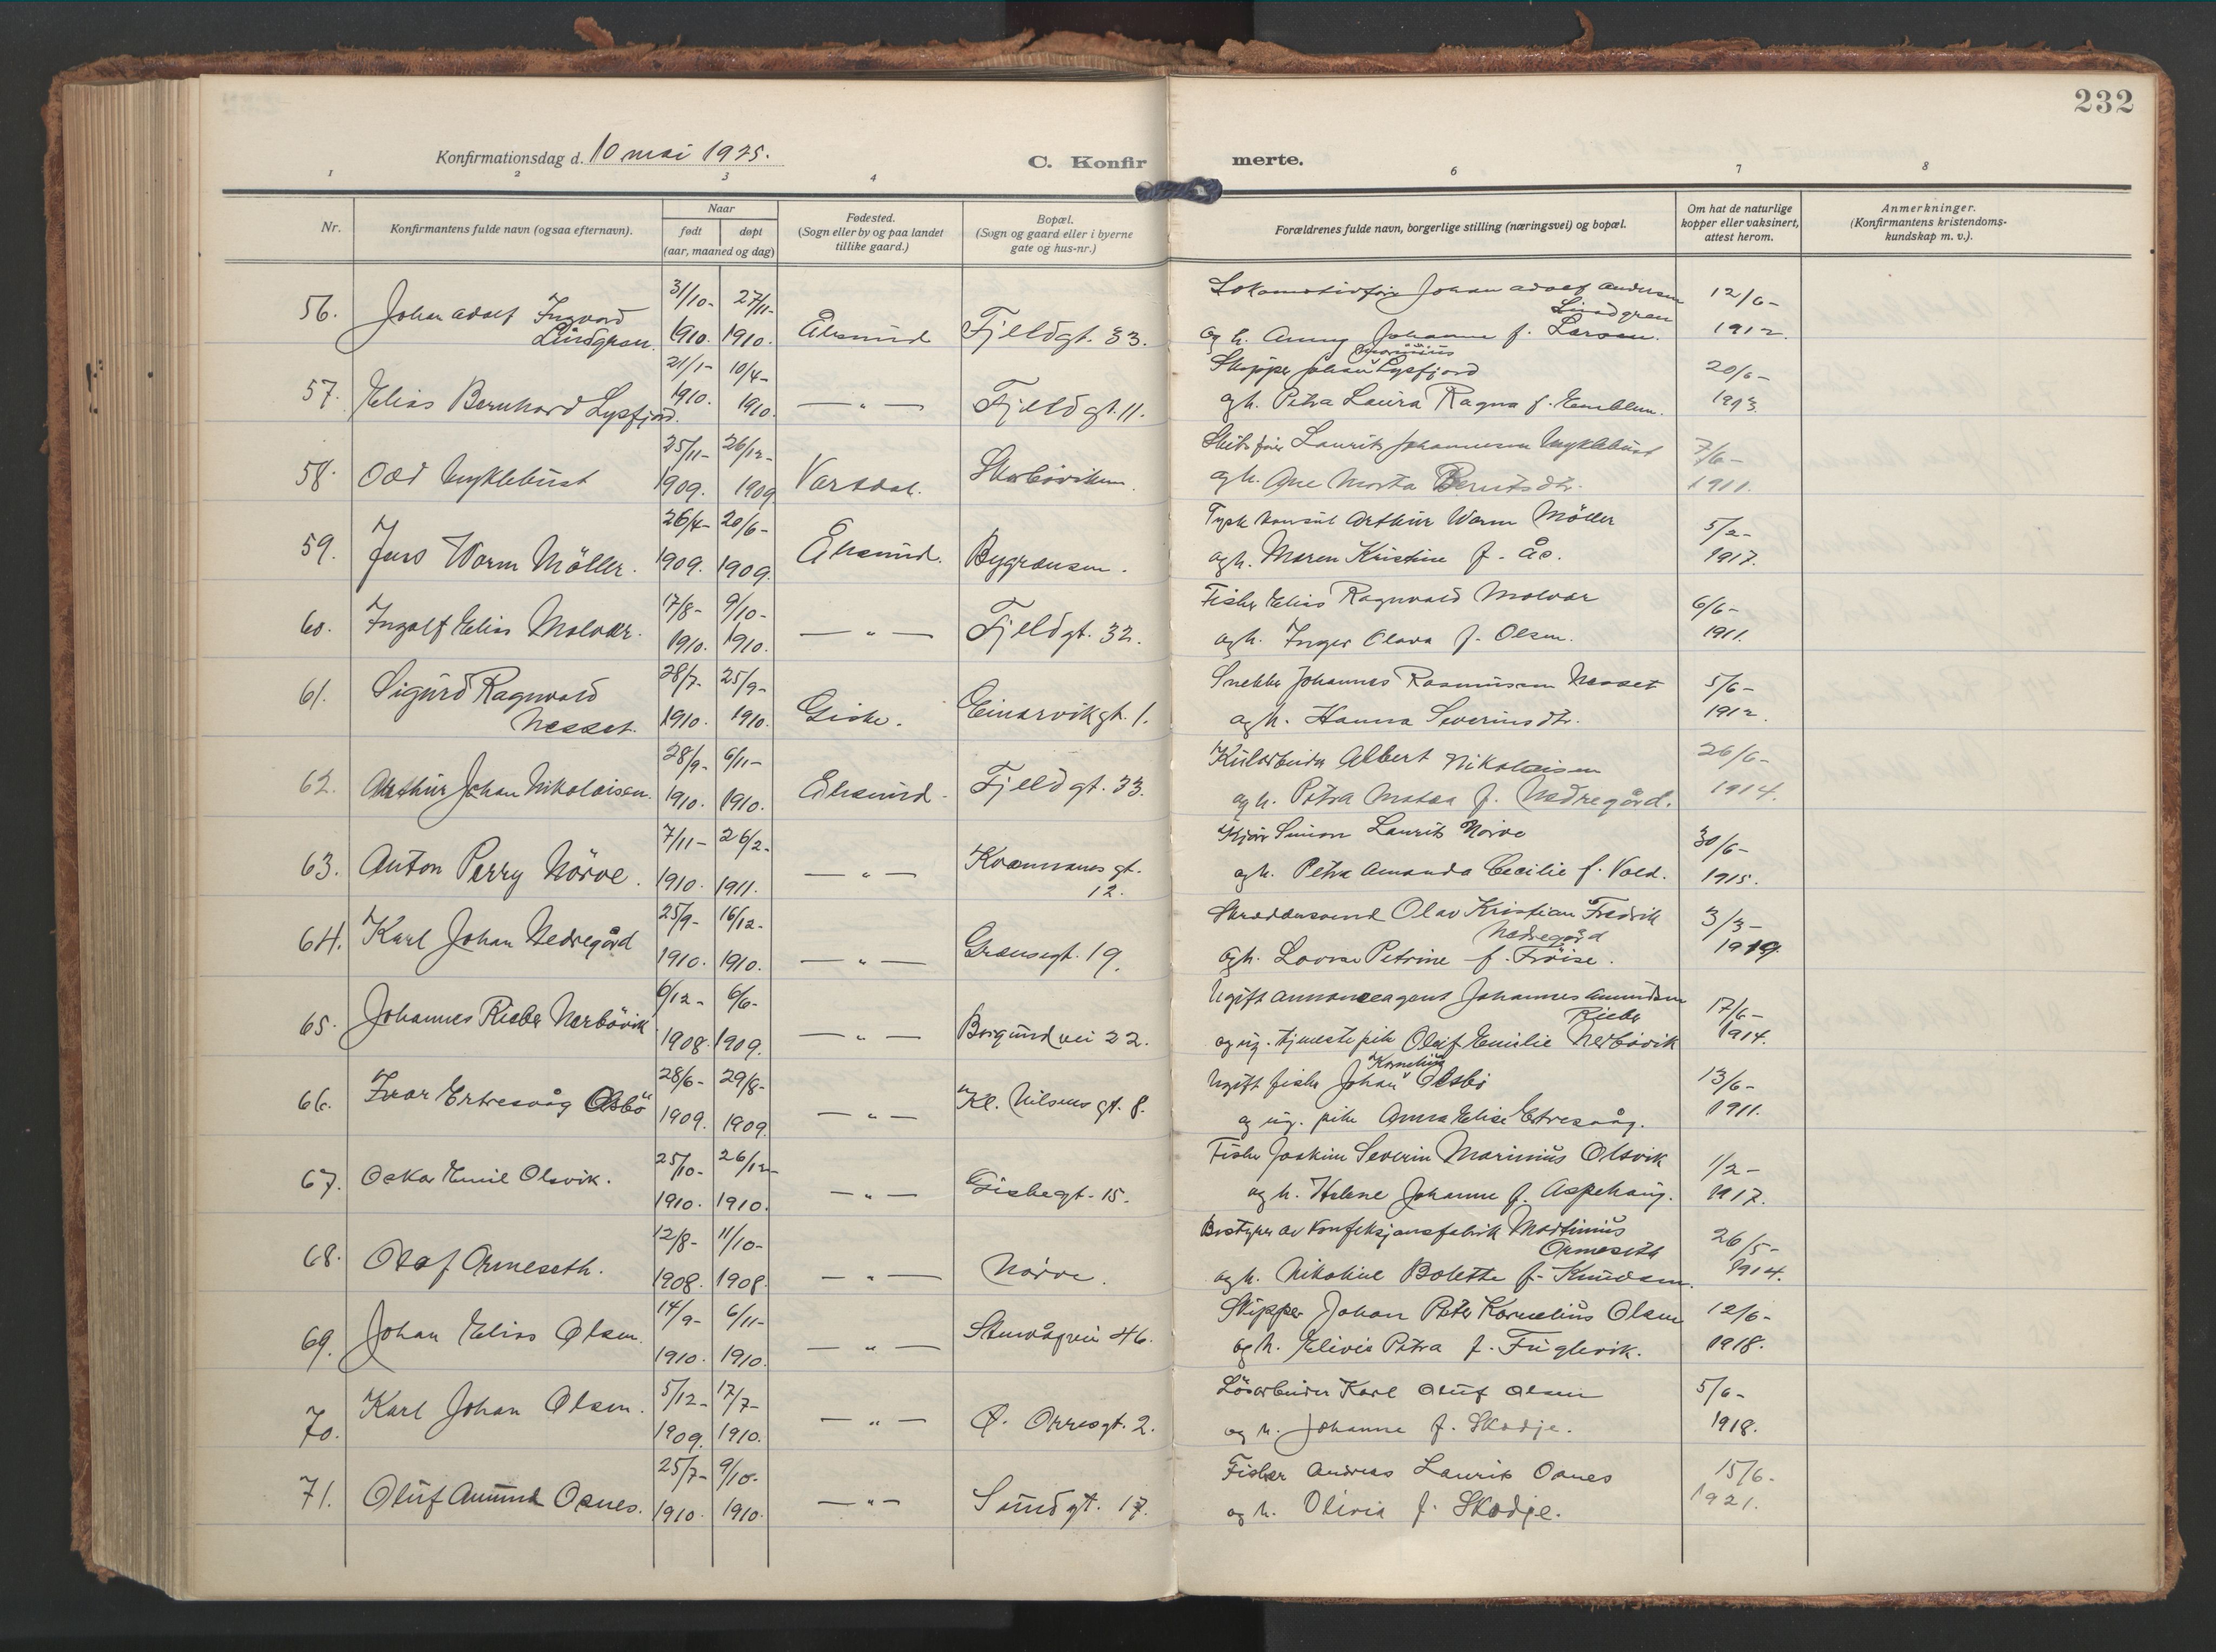 232
Konfirmationsdag d. 10 mai 1925.
C. Konfirmerte.
1 2 3 4 6 7 8
Nr.
Konfirmantens fulde navn (ogsaa efternavn).
Naar
født døpt
(aar, maaned og dag)
Fødested.
(Sogn eller by og paa landet
tillike gaard.)
Bopæl.
(Sogn og gaard eller i byerne
gate og hus-nr.)
Forældrenes fulde navn, borgerlige stilling (næringsvei) og bopæl.
Om hat de naturlige
kopper eller vaksinert,
attest herom.
Anmerkninger.
(Konfirmantens kristendoms-
kundskap m. v.).
56. Johan Adolf Ingvard 31/10- 27/11- Lokomotivfører Johan Adolf Andersen 12/6-
Lindgren
Lindgren. 1910. 1910. Ålesund Fjeldgt. 33. og h. Anny Johanne f. Larsen. 1912.
57. Elias Bernhard Lypfjord. 21/1- 10/4- Skipper Johan Lypfjord 20/6-
1910. 1910. — " — Fjeldgt. 11. og h. Petra Laura Ragna f. Emblem. 1913.
58. Odd Myklebust 25/11- 26/12- Laurits Johannesen Myklebust 7/6-
1909. 1909 Vartdal. og h. Ane Marta Berntsdtr. 1911.
59. Jens Worm Möller. 26/4- 20/6- Tysk konsul Arthur Worm Möller 5/2-
1909. 1909. Ålesund. Bygrensen. og h. Maren Kristine f. Ås. 1917.
60. Ingolf Elias Molvær. 17/8- 9/10- Fisker Elias Ragnvald Molvær 6/6-
1910. 1910. — " — Fjeldgt. 32. og h. Inger Olava f. Olsen. 1911.
61. Sigurd Ragnvald 28/7- 25/9- Snekker Johannes Rasmussen Nesset 5/6-
Nesset. 1910. 1910. Giske. Einarvikgt. 1. og h. Hanna Severinsdtr. 1912.
62. Arthur Johan Nikolaisen. 28/9- 6/11- Kularbeider Albert Nikolaisen 26/6-
1910. 1910. Ålesund. Fjeldgt. 33. og h. Petra f. Nedregård. 1914.
63. Anton Perry Nörve. 7/11- 26/2- Simon Laurits Nörve 30/6-
1910. 1911. — " — Kvennanes gt. 12. og h. Petra Amanda Cecilie f. Vold. 1915.
64. Karl Johan Nedregård 25/9- 16/12- Skreddersvend Olav Kristian Fredrik 3/3-
Nedregård
1910. 1910. — " — Grensegt. 19. og h. Lovise Petrine f. Fröise. 1919.
65. Johannes Rieber Nerbövik 6/12- 6/6- Ugift annonceagent Johannes Amundsen 17/6-
Rieber
1908. 1909. — " — Borgundvei 22. og ug. tjenestepike Oluf Emilie Nerbövik 1914.
66. Ivar Ertresvåg Olsbö 28/6- 29/8- Kornelius
Ugift fisker Johan Olsbö 13/6-
1909. 1909. — " — Kl. Nilsens gt. 8. og ug. pike Anna Elise Ertresvåg. 1911.
67. Oskar Emil Olsvik. 25/10- 26/12- Fisker Joakim Severin Marinius Olsvik 1/2-
1910. 1910. — " — Giskegt. 15. og h. Helene Johanne f. Aspehaug. 1917.
68. Olaf Ormeseth. 12/8- 11/10- Bestyrer av konfeksjonsfabrik Martinius 26/5-
Ormeseth
1908. 1908. — " — Nörve. og h. Nikoline Bolette f. Knudsen. 1914.
69. Johan Elias Olsen. 14/9- 6/11- Skipper Johan Peter Kornelius Olsen 12/6-
1910. 1910. — " — Stenvågvei 46. og h. Elivie Petra f. Fuglevik. 1918.
70. Karl Johan Olsen. 5/12- 17/7- Lösarbeider Karl Oluf Olsen 5/6-
1909. 1910. — " — Ø. Orresgt. 2. og h. Johanne f. Skodje. 1918.
71. Oluf Amund Osnes. 25/7- 9/10- Fisker Andreas Laurits Osnes 15/6-
1910. 1910. — " — Sundgt. 17. og h. Olivia f. Skodje. 1921.